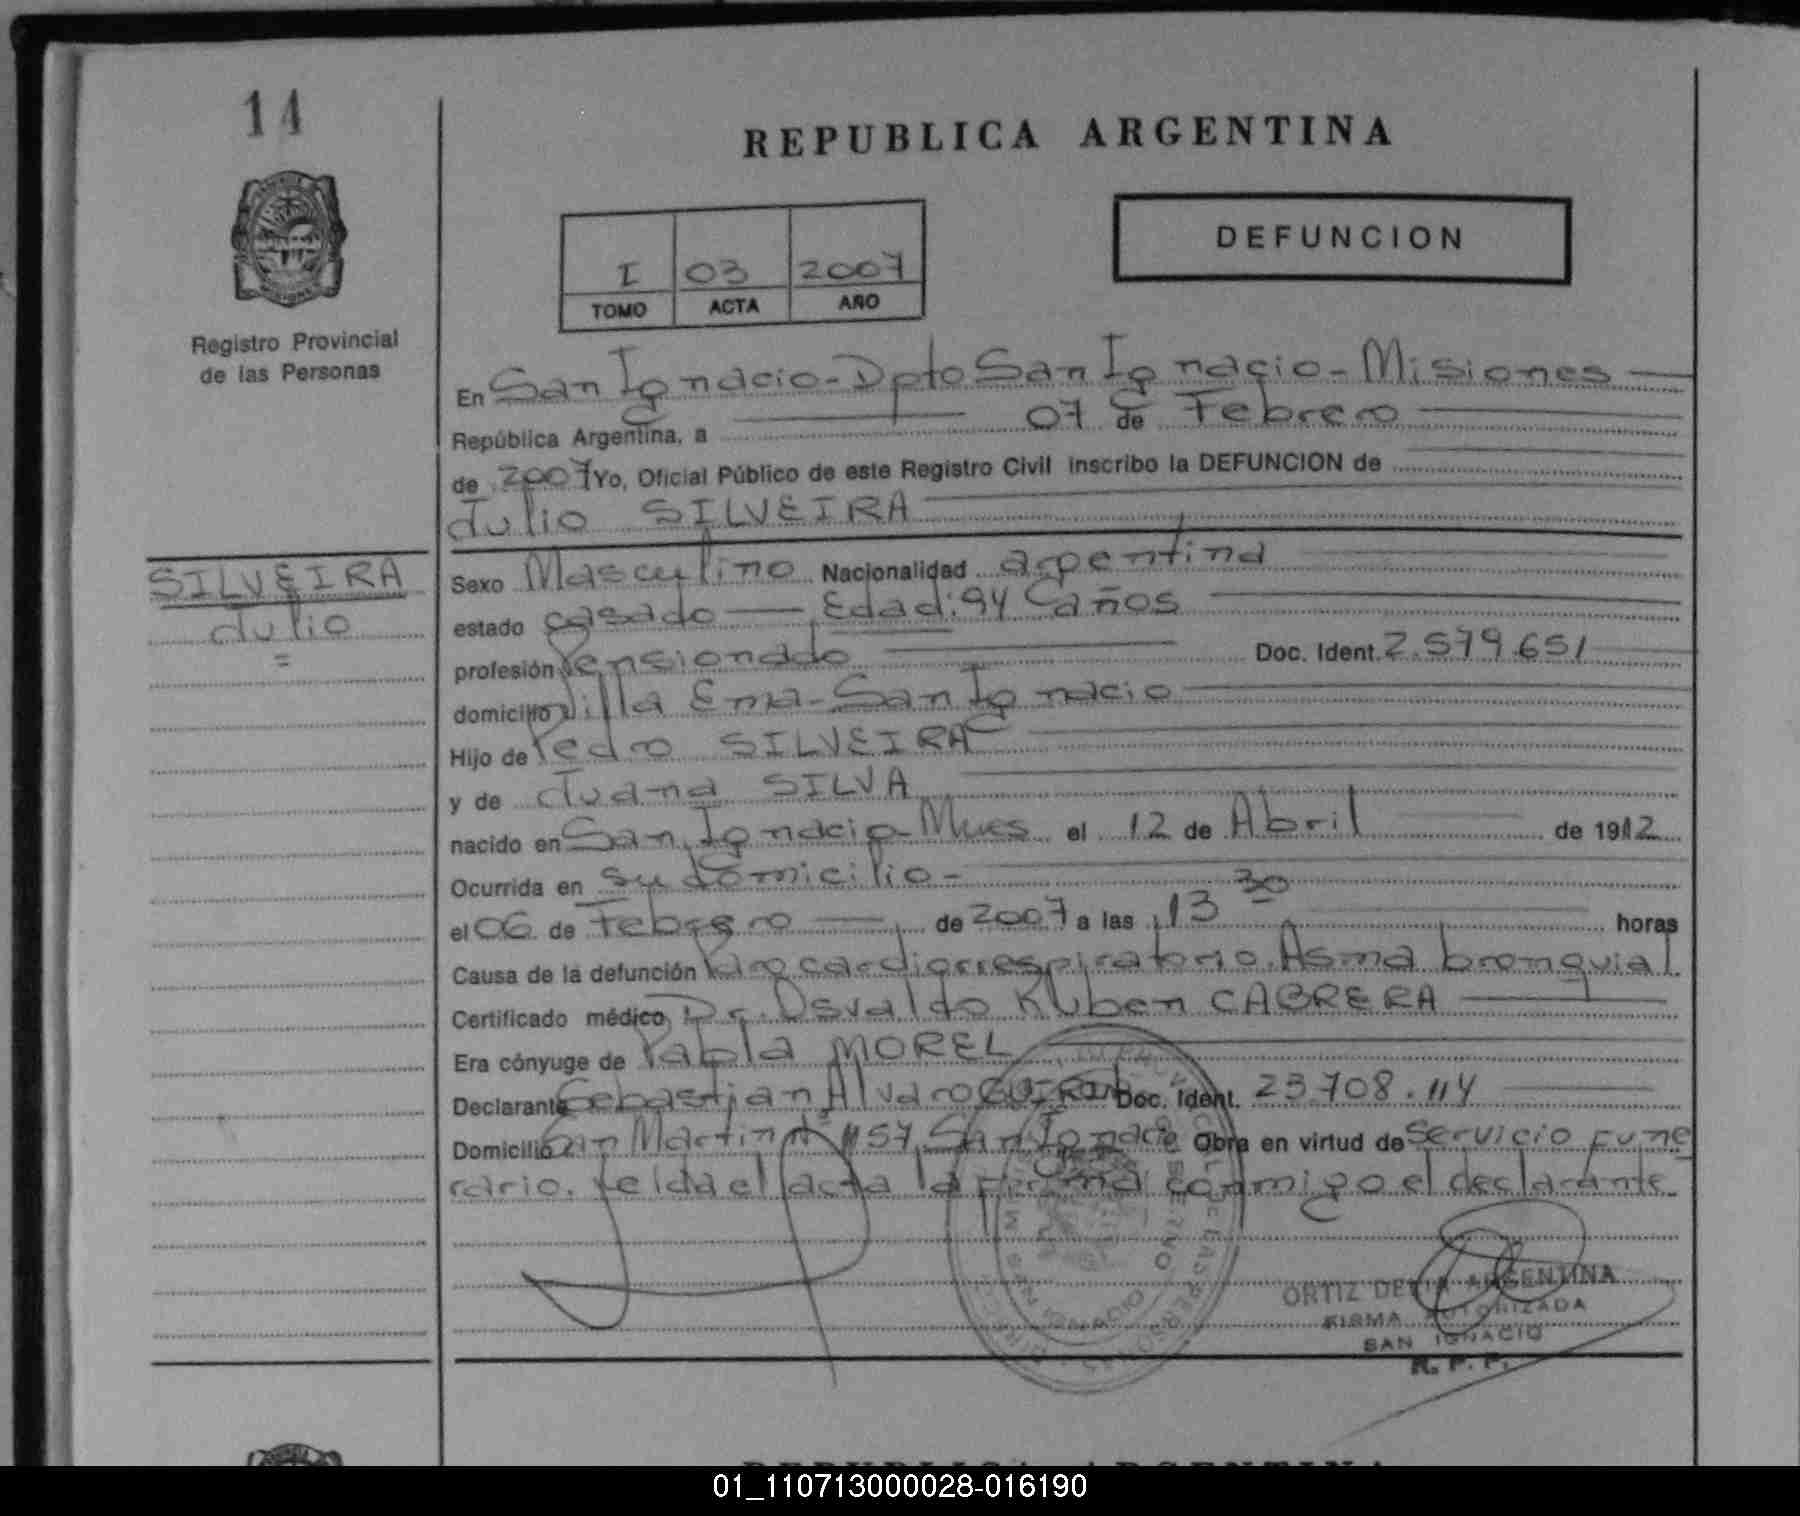 14
REPUBLICA ARGENTINA
DEFUNCION
I 03 2007
TOMO ACTA AÑO
Registro Provincial
de las Personas
En San Ignacio - Dpto San Ignacio - Misiones
República Argentina, a 07 de Febrero
de 2007 Yo, Oficial Público de este Registro Civil inscribo la DEFUNCION de
Julio SILVEIRA
SILVEIRA
Julio
=
Sexo Masculino Nacionalidad argentina
estado casado Edad: 94 años
profesión Pensionado Doc. Ident. 2.579.651
domicilio Villa Ema - San Ignacio
Hijo de Pedro SILVEIRA
y de Juana SILVA
nacido en San Ignacio - Mnes el 12 de Abril de 1912
Ocurrida en su domicilio -
el 06 de Febrero de 2007 a las 13 30 horas
Causa de la defunción Paro cardiorrespiratorio. Asma bronquial
Certificado médico Dr. Osvaldo Ruben CABRERA
Era cónyuge de Pabla MOREL
Declarante Sebastian Alvaro Doc. Ident. 23.708.114
Domicilio San Martin Nº 1157, San Ignacio Obra en virtud de servicio fune
rario. leida el acta la firma conmigo el declarante
ORTIZ DELIA ARGENTINA
FIRMA AUTORIZADA
SAN IGNACIO
R. P. P.
REPUBLICA ARGENTINA
01_110713000028-016190